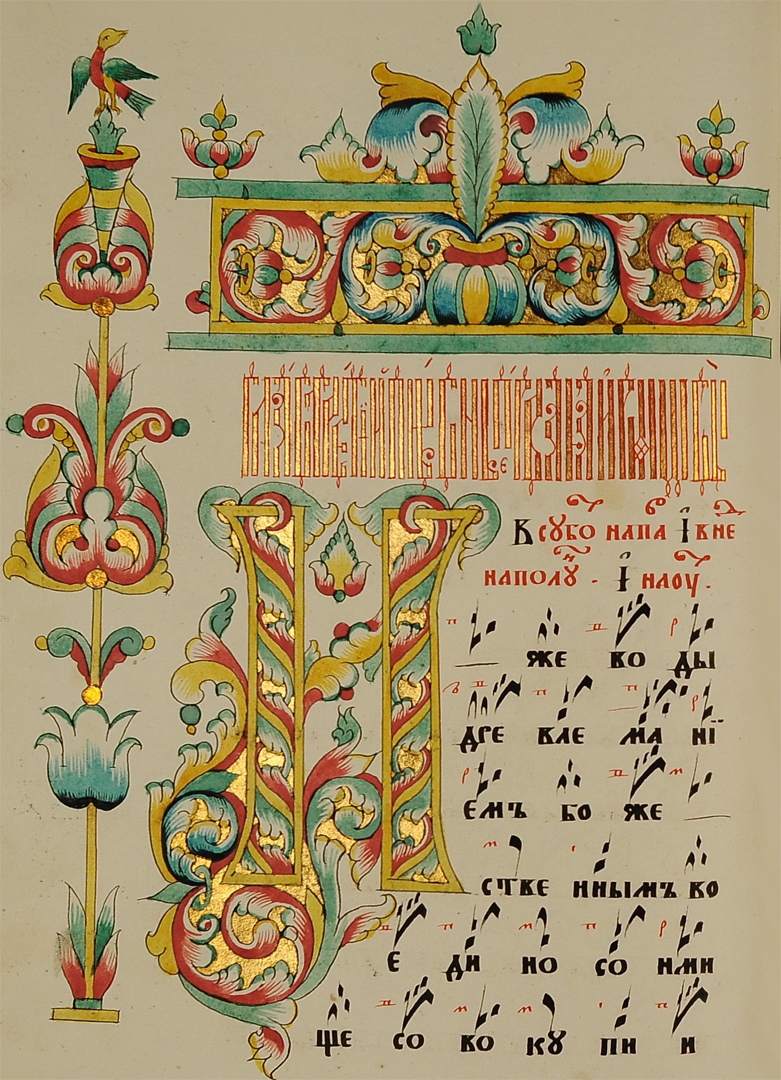 В сꙋбо напа І вне
наполꙋ . І наоу .
И же во ды
дре вле ма нї
емъ бо же
стве ннымъ во
е ди но со нми
ще со во кꙋ пи и